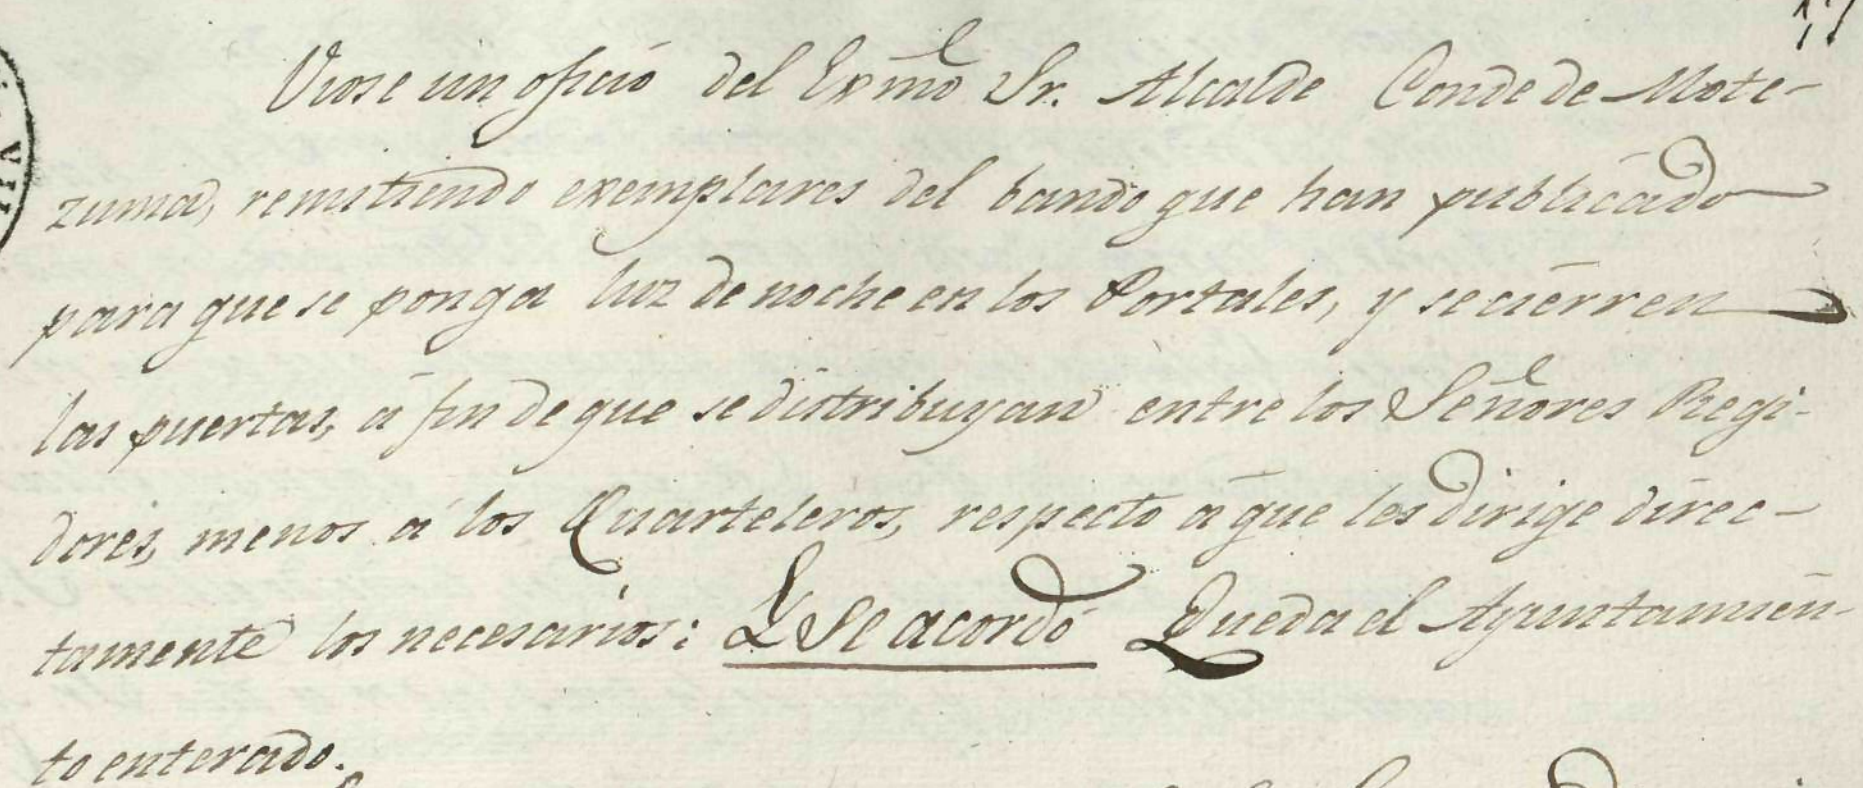 Viose un oficio del Exmo. Sr. Alcalde Conde de Mote-
zuma, remitiendo exemplares del bando que han publicado
para que se ponga luz de noche en los Portales, y se cierren
las puertas, á fin de que se distribuyan entre los Señores Regi-
dores, menos á los Quarteleros, respecto á que les dirige direc-
tamente los necesarios: Y Se acordó Queda el Ayuntamien-
to enterado.